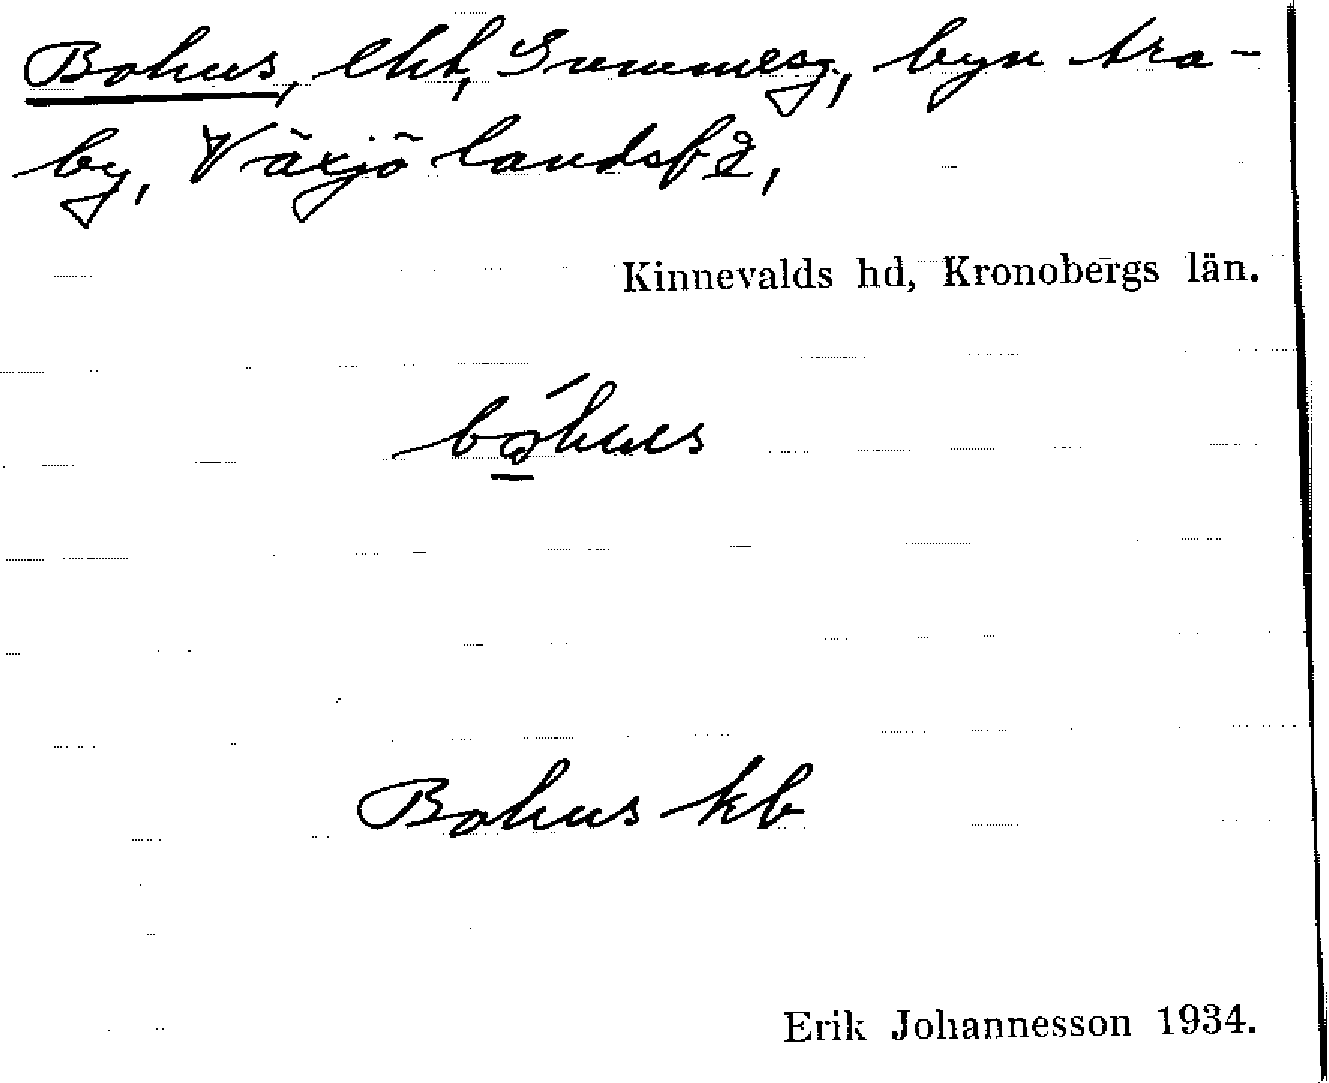 Bohus, lht, Gemmesg, byn Ara-
by, Växjö landsfd,
Kinnevalds hd, Kronobergs län.
bóhus
Bohus kb
Erik Johannesson 1934.